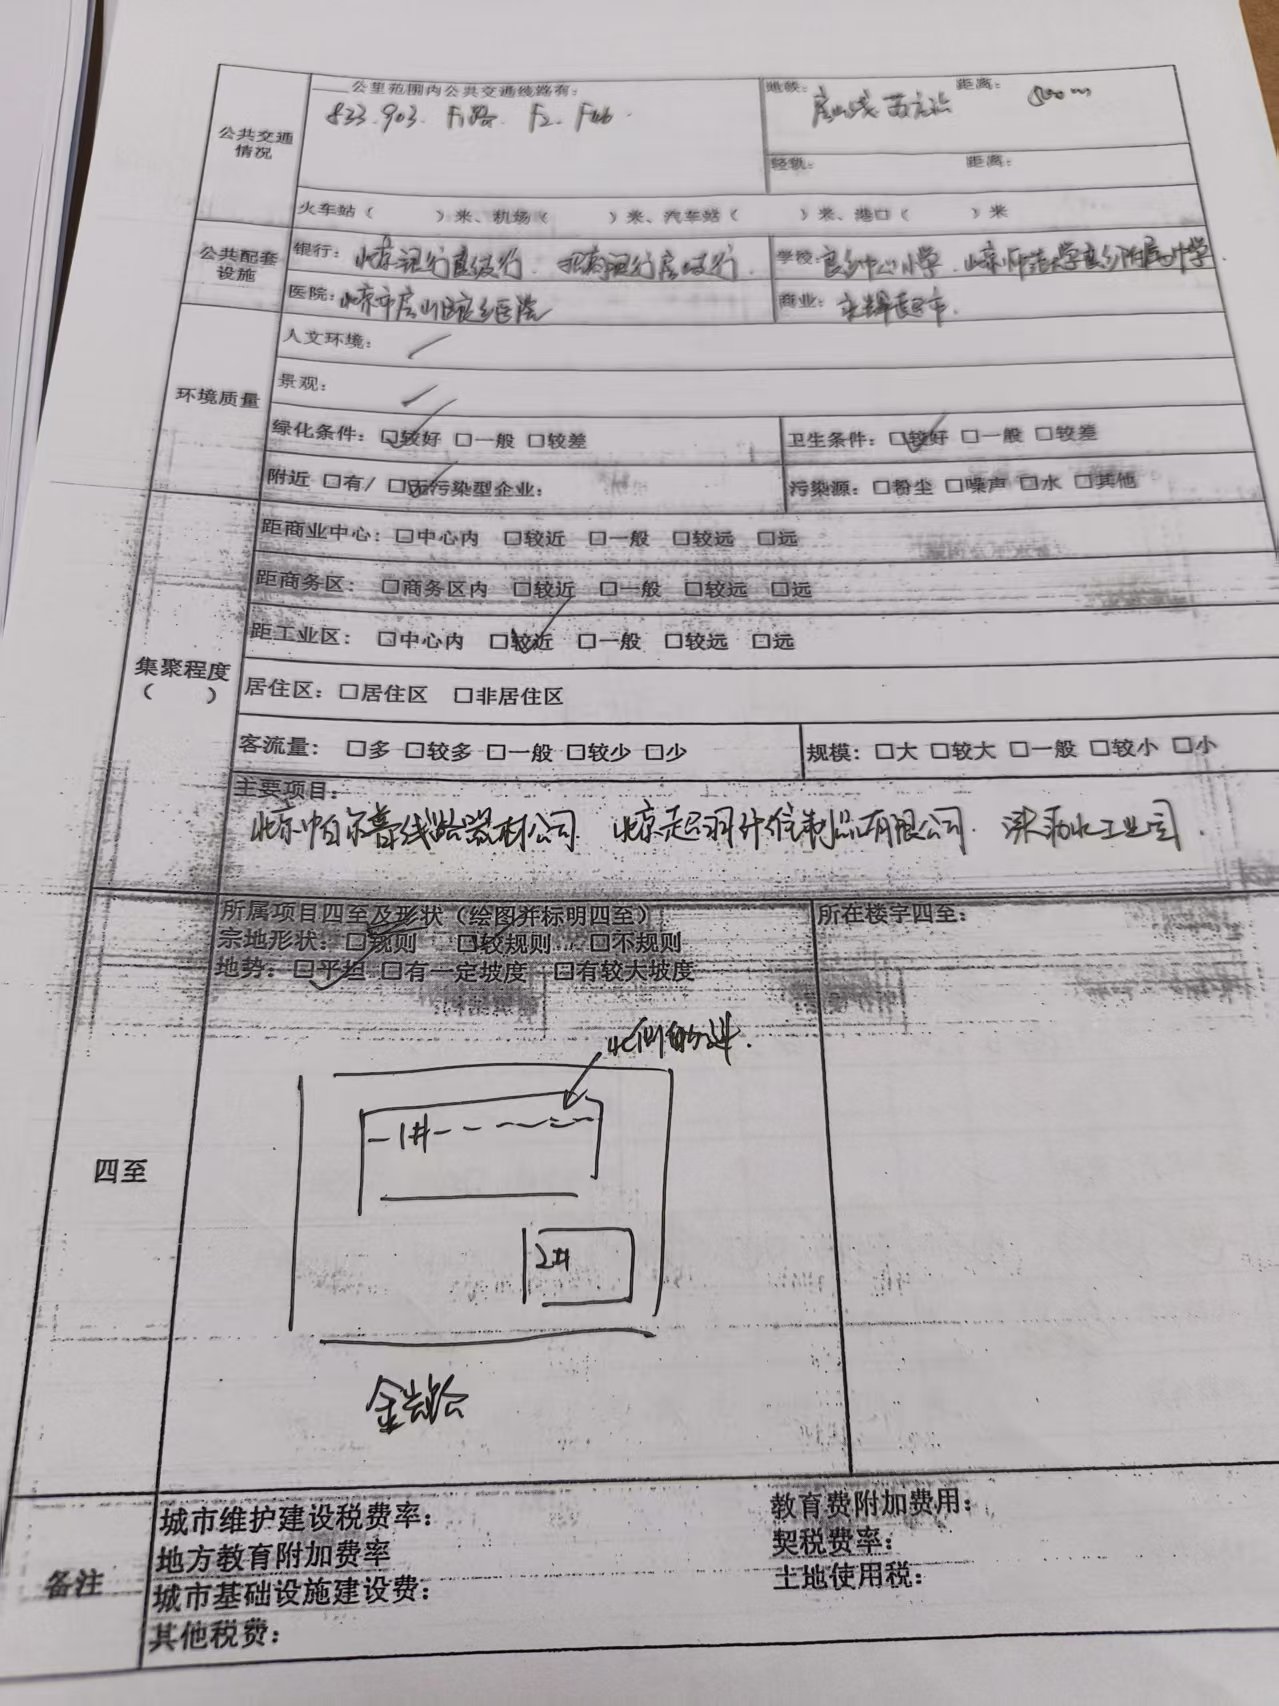 公里范围内公共交通线路有:
833. 903. F1路. F2. F46.
地铁: 房山线 距离: 800m
轻轨: 距离:
公共交通情况
火车站（ ）米、机场（ ）米、汽车站（ ）米、港口（ ）米
公共配套设施
银行: 北京银行良乡支行. 招商银行房山支行.
学校: 良乡中心小学. 北京师范大学良乡附属中学.
医院: 北京市房山区良乡医院
商业: 永辉超市.
环境质量
人文环境:
景观:
绿化条件: □较好 □一般 □较差
卫生条件: □较好 □一般 □较差
附近 □有/ □无污染型企业:
污染源: □粉尘 □噪声 □水 □其他
集聚程度（ ）
距商业中心: □中心内 □较近 □一般 □较远 □远
距商务区: □商务区内 □较近 □一般 □较远 □远
距工业区: □中心内 □较近 □一般 □较远 □远
居住区: □居住区 □非居住区
客流量: □多 □较多 □一般 □较少 □少
规模: □大 □较大 □一般 □较小 □小
主要项目:
北京帕尔普线路器材公司. 北京起羽纤维制品有限公司. 工业园.
四至
所属项目四至及形状（绘图并标明四至）
宗地形状: □规则 □较规则 □不规则
地势: □平坦 □有一定坡度 □有较大坡度
所在楼宇四至:
1#
2#
备注
城市维护建设税费率:
教育费附加费用:
地方教育附加费率
契税费率:
城市基础设施建设费:
土地使用税:
其他税费: